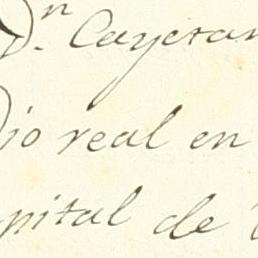 Dn. Cayetan
io real en
pital de